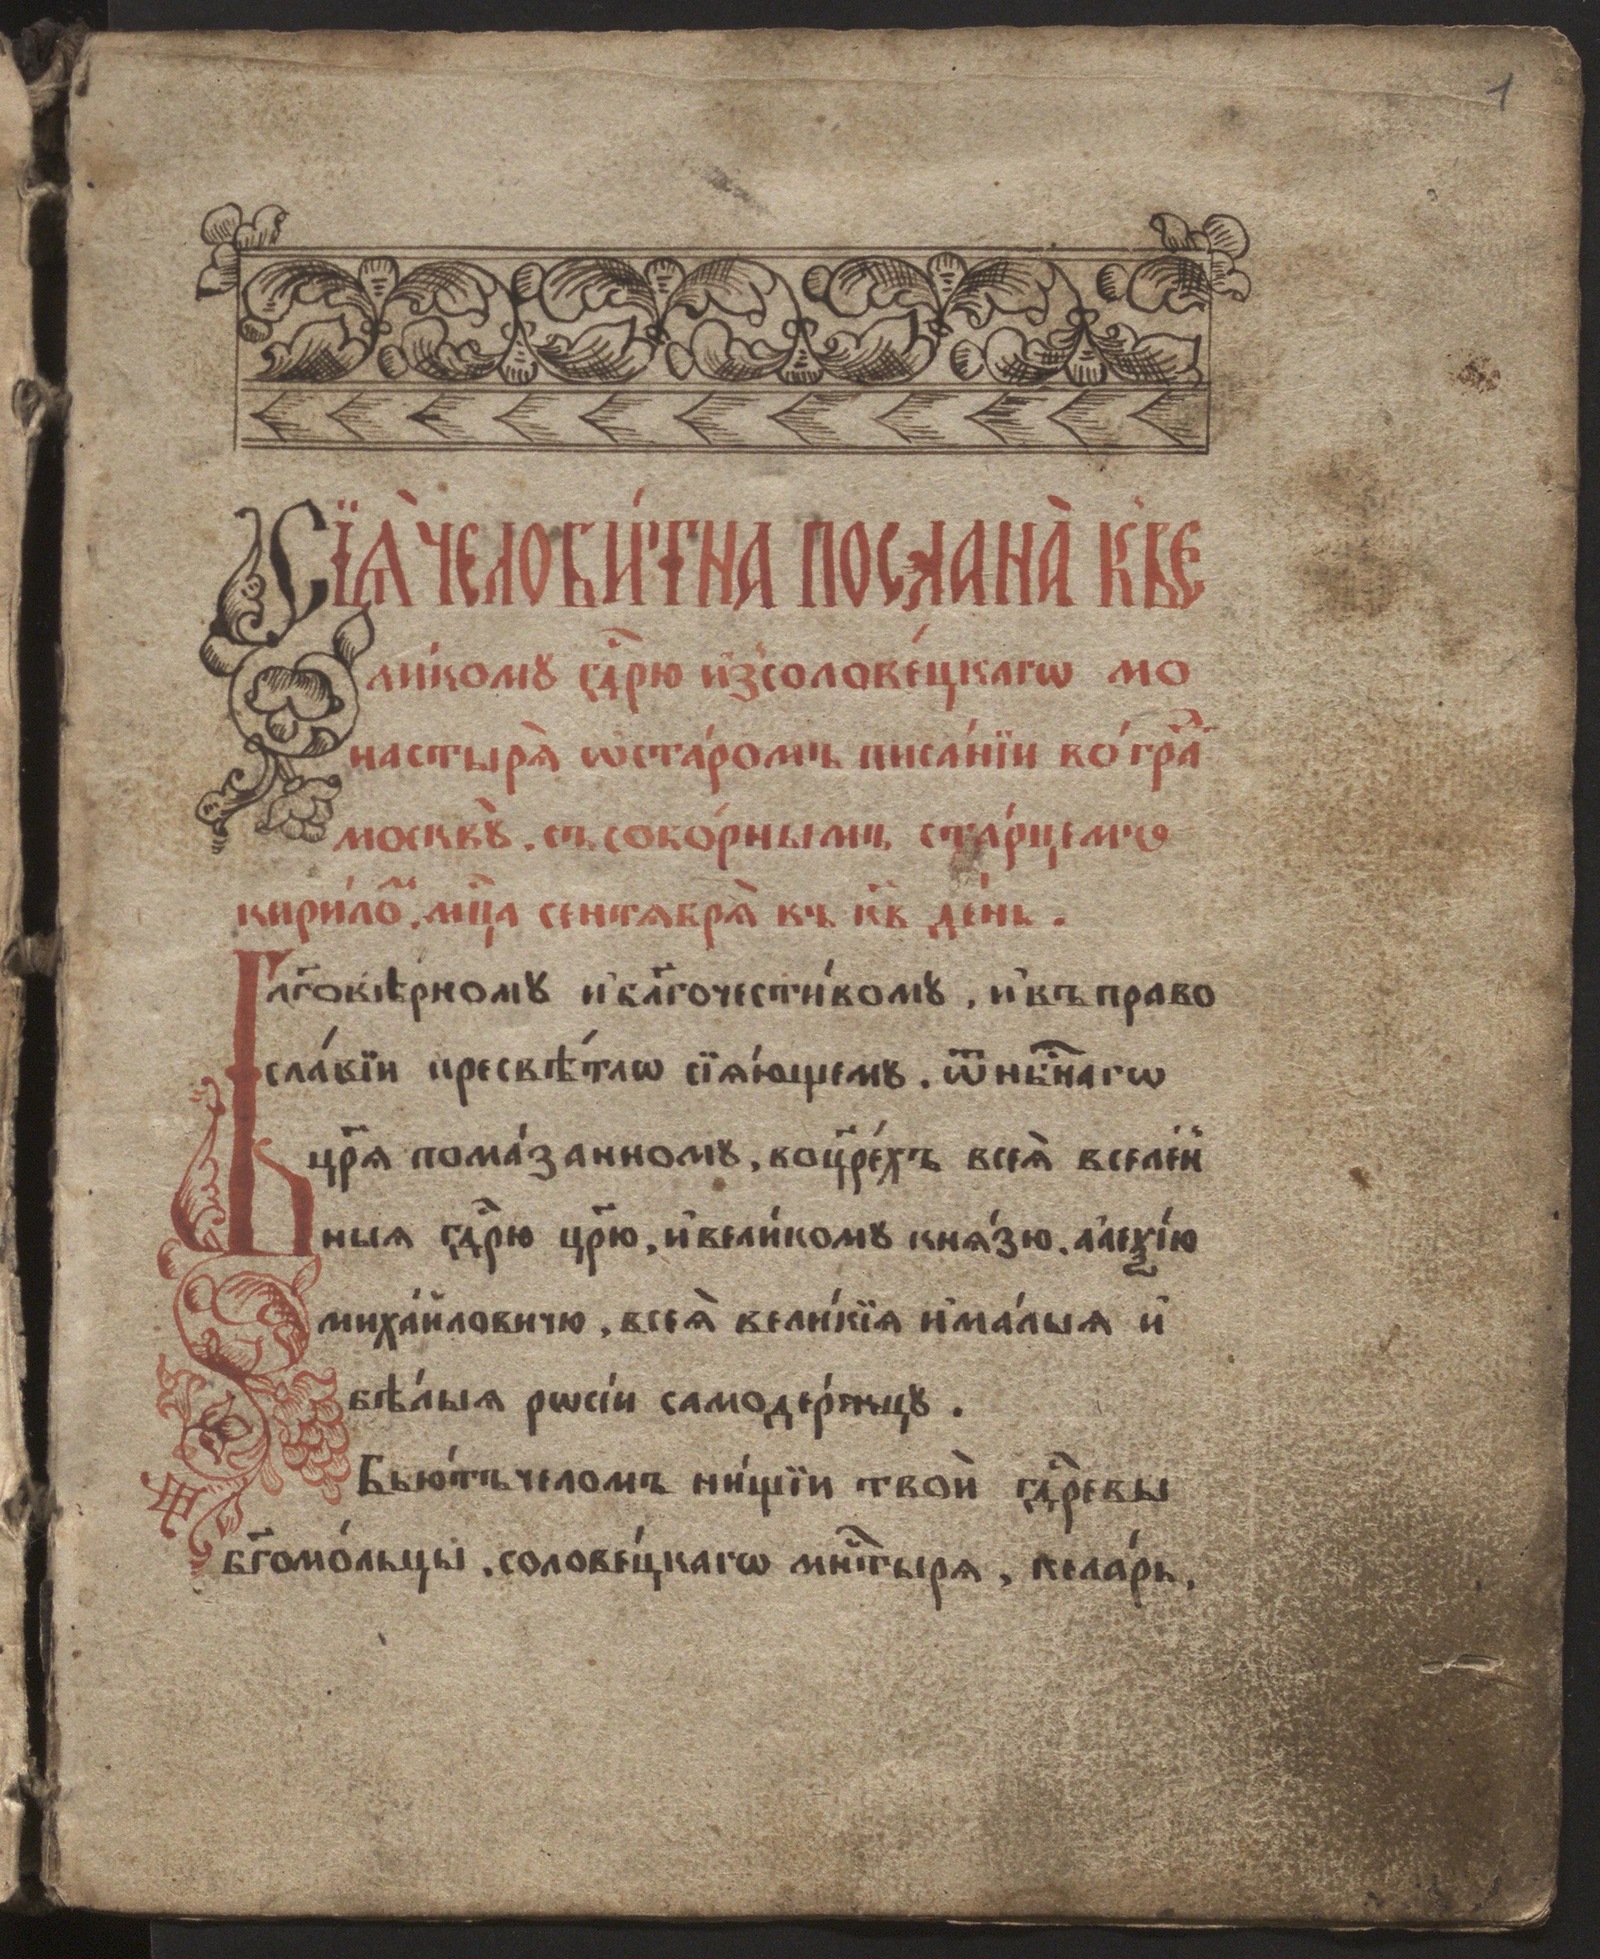 1
Сїѧ̀ челоби́тна посланà к̾ве
ли́кому гдⷭ҇рю и҆з̾солове́цкагѡ мо
настырѧ̀ ѡ҆ста́ромъ писа́нїи во́ граⷣ
москвꙋ̀. съсобо́рнымъ ста́рцемъ
кири́лоⷨ. мцⷭ҇а сентѧбрѧ̀ въ к҃в де́нь.
Блгⷭ҇овѣ́рному и҆ блгⷭ҇очести́вому, и҆въ право
сла́вїи пресвѣ́тлѡ сїѧ́ющему. ѿ нбⷭ҇нагѡ
цр҃ѧ пома́занному, воцр҃е́хъ всеѧ̀ вселе́н
ныѧ гдⷭ҇рю цр҃ю, и҆вели́кому кнѧ́зю. а҆леѯі́ю
миха́йловичю, всеѧ̀ вели́кїѧ и҆ма́лыѧ и҆
бѣ́лыѧ рѡсі́и самоде́ржцу.
Бью́тъ челомъ ни́щїи твоѝ гдⷭ҇ревы
бг҃омо́льцы, солове́цкагѡ мнⷭ҇тырѧ, кела́рь,